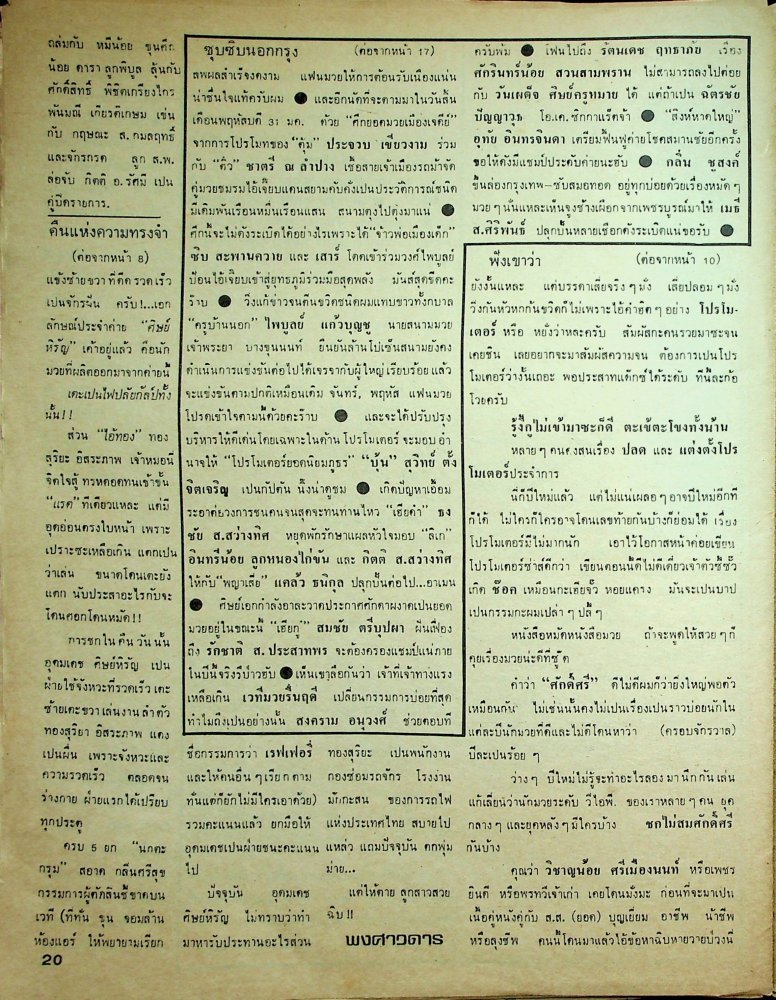 ถล่มกับ หมีน้อย ขุนศึก
น้อย ดารา ลูกพิบูล ลุ้นกับ
ศักดิ์สิทธิ์ พิชิตเกรียงไกร
พันมณี เกียรติเกษม เช่น
กับ กฤษณะ ส.กมลฤทธิ์
และจักรกรด ลูก ส.พ.
ล่อจับ กิตติ อ.รัศมี เป็น
คู่ปิดรายการ.
คืนแห่งความทรงจำ
(ต่อจากหน้า 8)
แข้งซ้ายขวาที่ดีดรวดเร็ว
เป็นจักรผัน ครับ!...เอก
ลักษณ์ประจำค่าย "ศิษย์
หิรัญ" เค้าอยู่แล้ว คือนัก
มวยที่ผลิตออกมาจากค่ายนี้
เตะเป็นไฟปลัยกัลป์ทั้ง
นั้น!!
ส่วน "ไอ้ทอง" ทอง
สุริยะ อิสระภาพ เจ้าหมอนี่
จิตใจสู้ ทรหดอดทนเข้าขั้น
"แรด" ทีเดียวแหละ แต่มี
จุดอ่อนตรงใบหน้า เพราะ
เปราะซะเหลือเกิน แตกเป็น
ว่าเล่น ขนาดโดนเตะยัง
แตก นับประสาอะไรกับจะ
โดนศอกโดนหมัด!!
การชกในคืนวันนั้น
อุดมเดช ศิษย์หิรัญ เป็น
ฝ่ายใช้จังหวะที่รวดเร็ว เตะ
ซ้ายเตะขวา เล่นงานลำตัว
ทองสุริยา อิสระภาพ แดง
เป็นผื่น เพราะจังหวะและ
ความรวดเร็ว ตลอดจน
ร่างกาย ฝ่ายแรกได้เปรียบ
ทุกประตู
ครบ 5 ยก "นกตะ
กรุม" สอาด กลิ่นศรีสุข
กรรมการผู้ตัดสินชี้ขาดบน
เวที (ที่ท่าน ขุน จอมล้าน
ห้องแอร์ ให้พยายามเรียก
ซุบซิบนอกกรุง (ต่อจากหน้า 17)
ลพผลสำเร็จงดงาม แฟนมวยให้การต้อนรับเนืองแน่น
น่าชื่นใจแท้ครับผม ● และอีกนัดที่จะตามมาในวันสิ้น
เดือนพฤหัสบดี 31 มค. ด้วย "ศึกยอดมวยเมืองเจดีย์"
จากการโปรโมทของ "ตุ้ม" ประจวบ เขียวงาม ร่วม
กับ "ติ๋ว" ชาตรี ณ ลำปาง เชื้อสายเจ้าเมืองรถม้าจัด
คู่มวยชมรมไอ้เจี๊ยบแดนสยามคับคั่งเป็นประวัติการณ์ชนิด
มีเดิมพันเรือนหมื่นเรือนแสน สนามตูงไปตุ่งมาแน่ ●
ศึกนี้จะไม่ดังระเบิดได้อย่างไรเพราะได้ "จ้าวพ่อเมืองเด็ก"
ซิบ สะพานควาย และ เสาร์ โดดเข้าร่วมวงศ์ไพบูลย์
ป้อนไอ้เจี๊ยบเข้าสู่ยุทธภูมิร่วมมือสุดพลัง มันส์สุดขีดคะ
ร๊าบ ● วิ่งแก้ข่าวจนตีนขวิดชนิดผมแทบขาวทั้งกบาล
"ครูบ้านนอก" ไพบูลย์ แก้วบุญชู นายสนามมวย
เจ้าพระยา บางขุนนนท์ ยืนยันล้านโปเซ็นสนามยังคง
ดำเนินการแข่งขันต่อไปได้เจรจากับผู้ใหญ่เรียบร้อยแล้ว
จะแข่งขันตามปกติเหมือนเดิม จันทร์, พฤหัส แฟนมวย
โปรดเข้าใจตามนี้ด้วยคะร๊าบ ● และจะได้ปรับปรุง
บริหารให้ดีเด่นโดยเฉพาะในด้าน โปรโมเตอร์ จะมอบอำ
นาจให้ "โปรโมเตอร์ยอดนิยมภูธร" "บุ้น" สุวิทย์ ตั้ง
จิตเจริญ เป็นกัปตัน นี่งน่าดูชม ● เกิดปัญหาเอื้อม
ระอาต่อวงการชนคนจนสุดจะทนทานไหว "เฮียดำ" ธง
ชัย ส.สว่างทิศ หยุดพักรักษาแผลหัวใจมอบ "ลิเก"
อินทรีน้อย ลูกหนองไก่ขัน และ กิตติ ส.สว่างทิศ
ให้กับ "พญาเสือ" แคล้ว ธนิกุล ปลุกปั้นต่อไป...อาเมน
● ศิษย์เอกกำลังอาละวาดประกาศศักดาผงาดเป็นยอด
มวยอยู่ในขณะนี้ "เฮียกู้" สมชัย ตรีบุปผา ฝันเฟื่อง
ถึง รักชาติ ส.ประสาทพร จะต้องครองแชมป์แน่ภาย
ในปีนี้จริงรึป่าวฮับ ● เห็นเขาลือกันว่า เจ้าที่เจ้าทางแรง
เหลือเกิน เวทีมวยรื่นฤดี เปลี่ยนกรรมการบ่อยที่สุด
ทำไมถึงเป็นอย่างนั้น สงคราม อนุวงศ์ ช่วยตอบที
ครับพ้ม ● โฟนไปถึง รัตนเดช ฤทธาภัย เรื่อง
ศักรินทร์น้อย สวนสามพราน ไม่สามารถลงไปต่อย
กับ วันเผด็จ ศิษย์ครูหมาย ได้ แต่ถ้าเป็น ฉัตรชัย
ปัญญาวุธ โอ.เค.ซิกกาแร็ตจ้า ● "สิงห์หาดใหญ่"
อุทัย อินทรจินดา เตรียมฟื้นฟูค่ายโชคสมานชัยอีกครั้ง
ขอให้ดังมีแชมป์ประดับค่ายนะฮับ ● กลิ่น ชูสงค์
ขึ้นล่องกรุงเทพ–ซับสมอทอด อยู่ทุกบ่อยด้วยเรื่องหมัดๆ
มวยๆนั่นแหละเห็นจูงช้างเผือกจากเพชรบูรณ์มาให้ เมธี
ส.ศิริพันธ์ ปลุกปั้นหลายเชือกดังระเบิดแน่ขอรับ ●
ฟังเขาว่า (ต่อจากหน้า 10)
ยังงั้นแหละ แต่บรรดาเสี่ยจริงๆมั่ง เสี่ยปลอมๆมั่ง
วิ่งกันหัวหกก้นขวิดก็ไม่เพราะไอ้คำฮิตๆอย่าง โปรโม-
เตอร์ หรือ หยั่งว่าหละครับ สัมผัสกะคนรวยมาซะจน
เคยชิน เลยอยากจะมาสัมผัสความจน ต้องการเป็นโปร
โมเตอร์ว่างั้นเถอะ พอประสาทแด๊กซ์ได้ระดับ ทีนี้ละก้อ
โวยครับ
รู้งี้กูไม่เข้ามาซะก็ดี ตะเข้ตะโขงทั้งน้าน
หลายๆคนคงสนเรื่อง ปลด และ แต่งตั้งโปร
โมเตอร์ประจำการ
นี่ก็ปีใหม่แล้ว แต่ไม่แน่เผลอๆอาจปีใหม่อีกที
ก็ได้ ไม่ใครก็ใครอาจโดนเลขท้ายกันบ้างก็ย่อมได้ เรื่อง
โปรโมเตอร์มีไม่มากนัก เอาไว้โอกาสหน้าค่อยเขียน
โปรโมเตอร์ซาส์ดีกว่า เขียนตอนนี้ดีไม่ดีเดี๋ยวเจ้าตัวชี้ซั้ว
เกิด ช๊อค เหมือนกะเฮียจั๊ว หอยแครง มันจะเป็นบาป
เป็นกรรมกะผมเปล่าๆปลี้ๆ
หนังสือหมัดหนังสือมวย ถ้าจะพูดให้สวยๆก็
คุยเรื่องมวยน่ะดีที่ซู้ด
คำว่า "ศักดิ์ศรี" ดีไม่ดีผมก็ว่ายิ่งใหญ่พอตัว
เหมือนกัน ไม่เช่นนั้นคงไม่เป็นเรื่องเป็นราวบ่อยนักใน
แต่ละปีนักมวยที่ดีและไม่ดีโดนหาว่า (ครอบจักรวาล)
ปีละเป็นร้อยๆ
ว่างๆ ปีใหม่ไม่รู้จะทำอะไรลองมานึกกันเล่น
แก้เลี่ยนว่านักมวยระดับ วีไอพี. ของเราหลายๆคน ยุค
กลางๆและยุคหลังๆมีใครบ้าง ชกไม่สมศักดิ์ศรี
กันบ้าง
คุณว่า วิชาญน้อย ศรีเมืองนนท์ หรือเพชร
ยินดี หรือพรทวีเจ้าเก่า เคยโดนมั่งมะ ก่อนที่จะมาเป็น
เนื้อคู่หนังคู่กับ ส.ส. (ยอด) บุญเยี่ยม อาชีพ น้าชีพ
หรือลุงชีพ คนนี้โดนมาแล้วไอ้ข้อหาฉิบหายวายป่วงนี่
ชื่อกรรมการว่า เรฟเฟอรี่
และให้คนอื่นๆเรียกตาม
ทั่นแต่ก็ยักไม่มีใครเอาด้วย)
รวมคะแนนแล้ว ยกมือให้
อุดมเดชเป็นฝ่ายชนะคะแนน
ไป
ปัจจุบัน อุดมเดช
ศิษย์หิรัญ ไม่ทราบว่าทำ
มาหารับประทานอะไรส่วน
ทองสุริยะ เป็นพนักงาน
กองซ่อมรถจักร โรงงาน
มักกะสน ของการรถไฟ
แห่งประเทศไทย สบายไป
แหล่ว แถมปัจจุบัน ตกพุ่ม
ม่าย...
แต่ให้ตาย ลูกสาวสวย
ฉิบ!!
พงศาวดาร
20